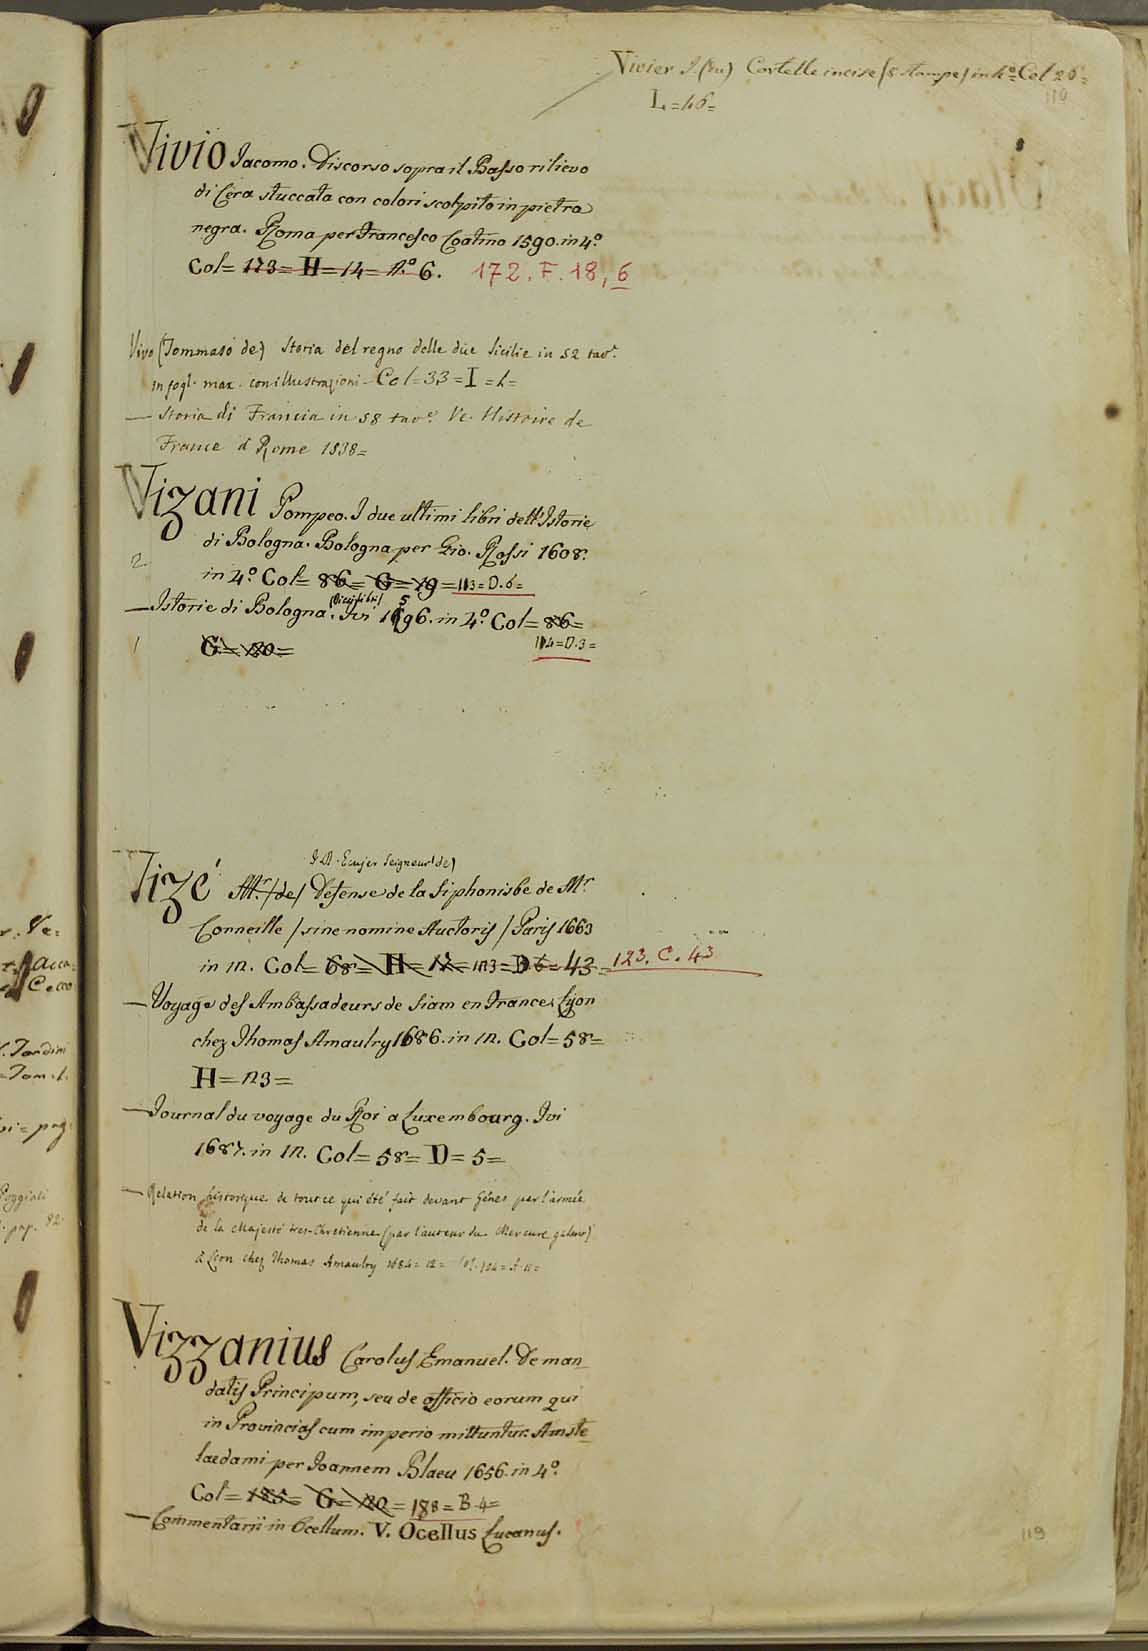 Vivier I. (du) Cartelle incise (5 stampe) in 4.º Col 26=
L=46=
110
Vivio Jacomo. Discorso sopra il Basso rilievo
di Cera stuccata con colori scolpito in pietra
negra. Roma per Francesco Coattino 1590. in 4.º
Col= 173= H=14= N.º 6. 172. F. 18, 6
Vivo (Tommaso de) Storia del regno delle due Sicilie in 52 tav.e
in fogl. max. con illustrazioni- Col=33=I=4=
— Storia di Francia in 58 tav.e Ve. Histoire de
France à Rome 1838=
Vizani Pompeo. I due ultimi libri dell'Istorie
di Bologna. Bologna per Gio. Rossi 1608.
2 in 4.º Col= 86= G=19=113=D.6=
(Dieci libri) 5
— Istorie di Bologna. Ivi 1596. in 4.º Col= 86=
1 G=20= 114=D.3=
J. D. Ecujer Seigneur (de)
Vizé Mr. (de) Defense de la Siphonisbe de Mr.
Corneille / sine nomine Auctoris / Paris 1663
in 12. Col= 68= H=12=123=D.6=43= 123. C. 43
— Voyage des Ambassadeurs de Siam en France. Lyon
chez Thomas Amaulry 1686. in 12. Col=58=
H=23=
— Journal du voyage du Roi a Luxembourg. Ivi
1687. in 12. Col=58=D=5=
— Relation historique de tout ce qui été fait devant Gênes par l'armée
de la Majesté tres-Chretienne (par l'auteur du Mercure galant)
à Lion chez Thomas Amaulry 1684=12= Col.104=A.11=
Vizzanius Carolus Emanuel. De man_
datis Principum, seu de officio eorum qui
in Provincias cum imperio mittuntur. Amste_
laedami per Joannem Blaeu 1656. in 4.º
Col= 185= G=20= 188=B.4=
— Commentarii in Ocellum. V. Ocellus Lucanus.
119